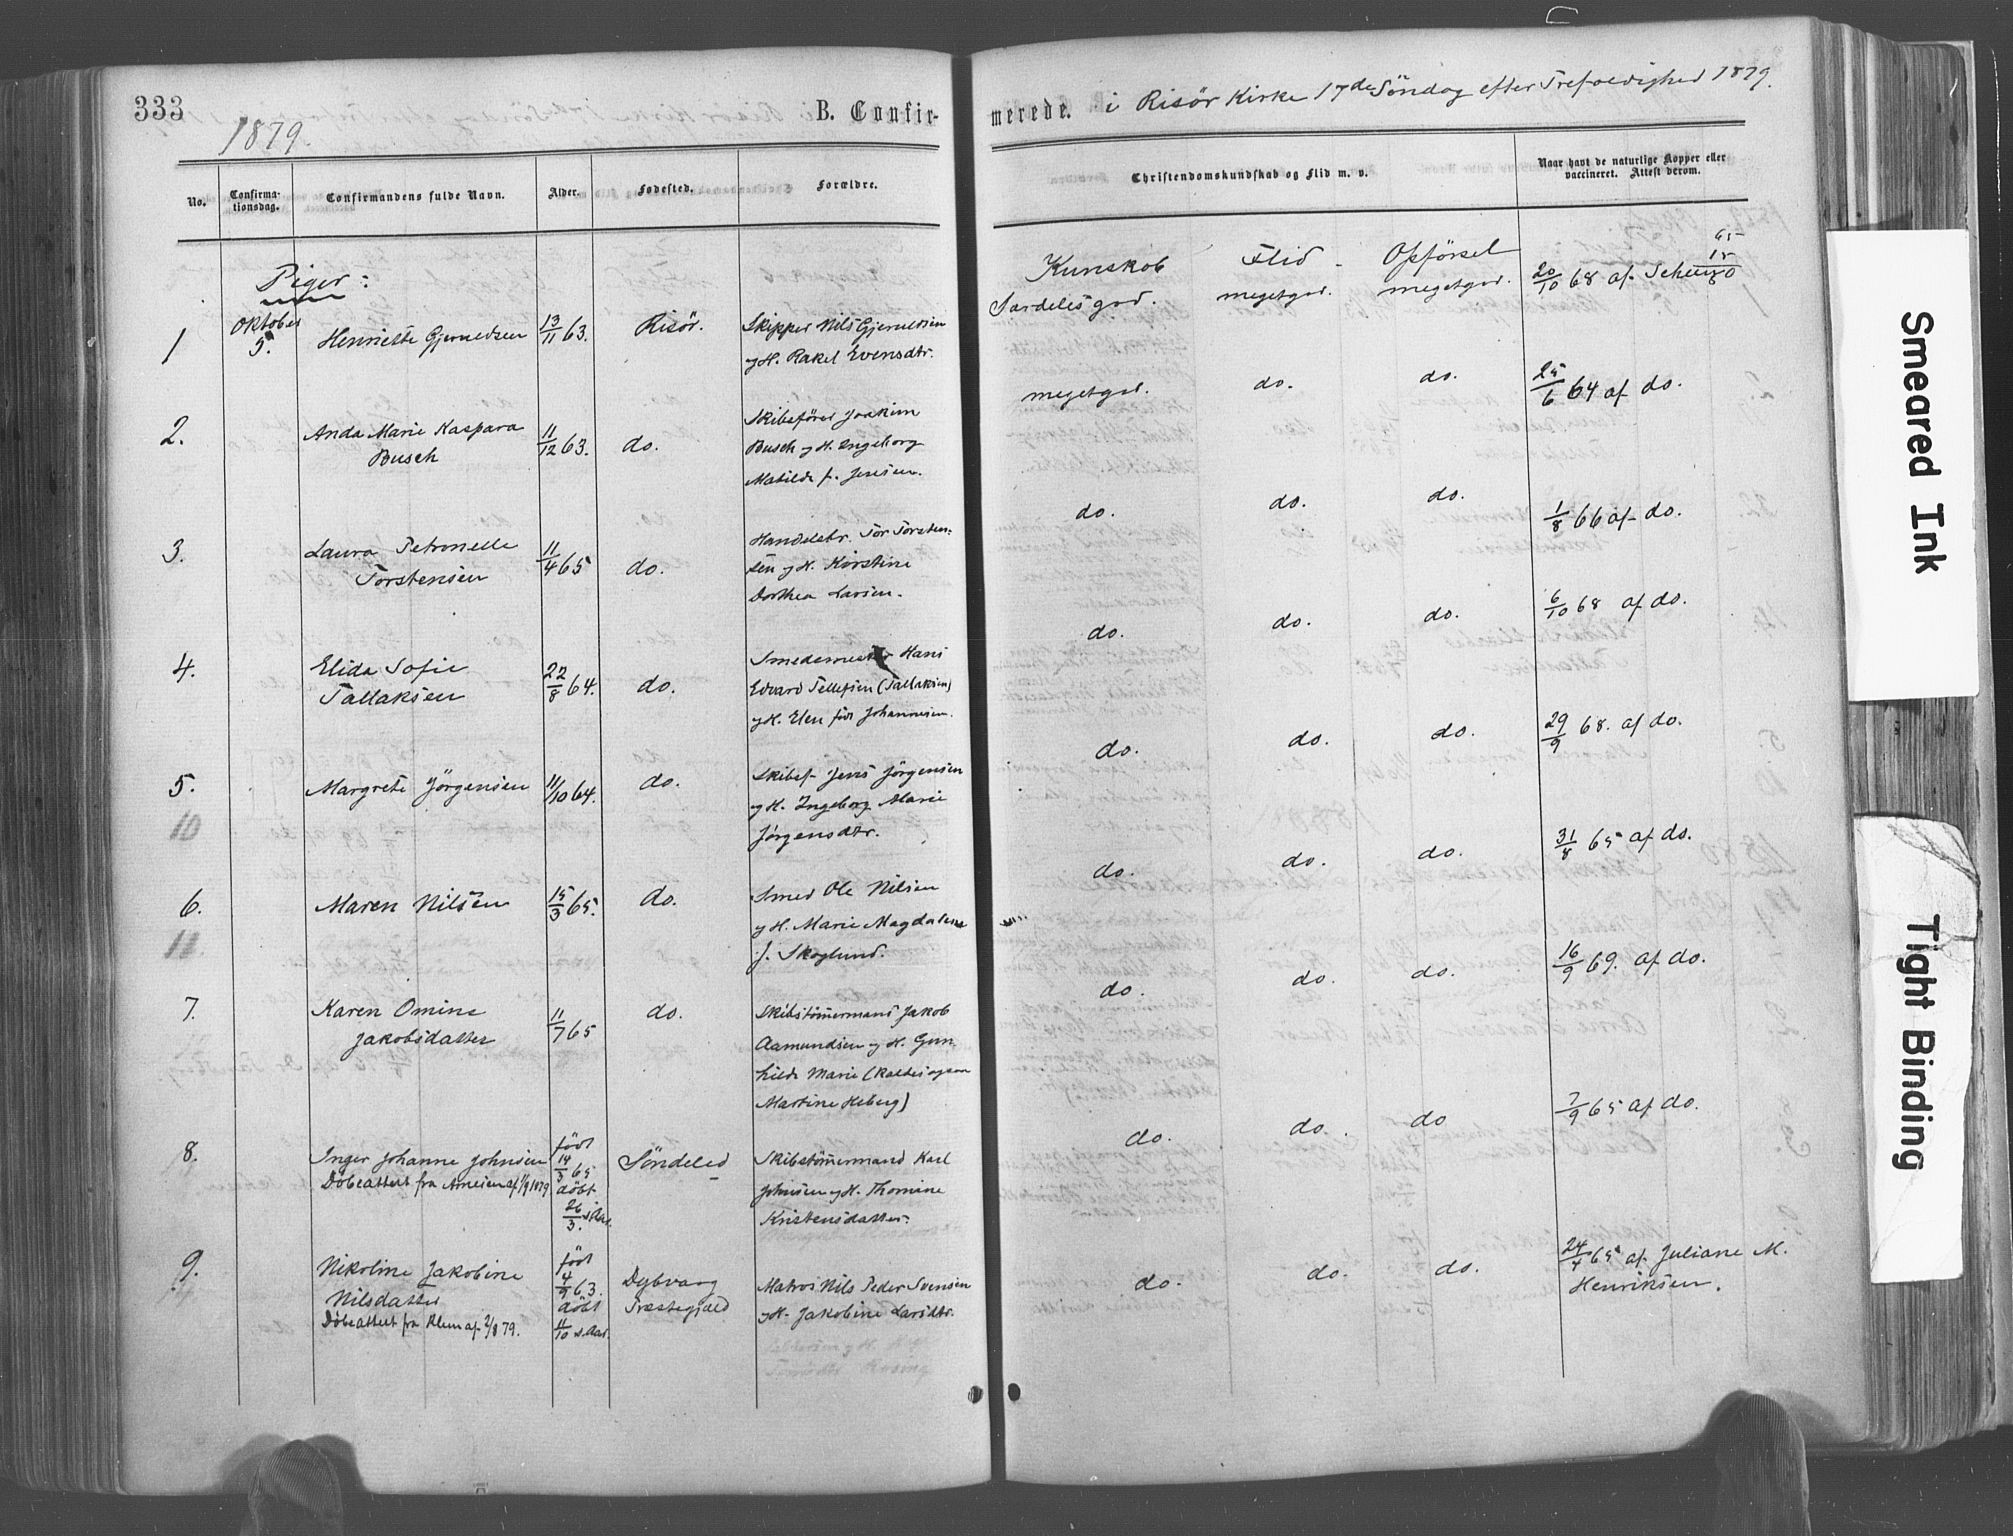 333
1879.
B. Confir-
merede. i Risör Kirke 17de Söndag efter Trefoldighed 1879.
No. Confirma-tionsdag. Confirmandens fulde Navn. Alder. Fødested. Forældre.
Christendomskundskab og Flid m. v. Naar havt de naturlige Kopper eller vaccineret. Attest derom.
Piger:
Kunskab Flid - Opförsel
1 Oktober 5. Henriette Gjeruldsen 13/11 63. Risör. Skipper Nils Gjeruldsen
og H. Rakel Evensdtr.
Særdelesgod. megetgod. megetgod. 20/10 68 af
2. Anda Marie Kaspara
Busch 11/12 63. do. Skibsförer Joakim
Busch og H. Ingeborg
Matilde f. Jensen.
megetgod. do. do. 25/6 64 af do.
3. Laura Petronelle
Torstensen 11/4 65 do. Handelsbr. Tor Torsten-
sen og H. Kirstine
Dorthea Larsen.
do. do. do. 1/8 66 af do.
4. Elida Sofie
Tallaksen 22/8 64. do. Smedemester Hans
Edvard Tellefsen (Tallaksen)
og H. Elen föd Johannesen.
do. do. do. 6/10 68 af do.
5. Margrete Jörgensen 11/10 64. do. Skibsf. Jens Jörgensen
og H. Ingeborg Marie
Jörgensdtr.
do. do. do. 29/9 68. af do.
10
6. Maren Nilsen 15/3 65. do. Smed Ole Nilsen
og H. Marie Magdalene
f. Skoglund.
do. do. do. 31/8 65 af do.
11.
7. Karen Omine
Jakobsdatter 11/7 65 do. Skibstömermand Jakob
Aamundsen og H. Gun
hilde Marie (kaldes ogsaa
Martine Heberg)
do. do. do. 16/9 69. af do.
8. Inger Johanne Johnsen
Döbeattest fra Arnesen af 1/9 1879
födt
14/3 65
döbt
26/3 s. Aar.
Söndeled Skibstömermand Karl
Johnsen og H. Thomine
Kristensdatter.
do. do. do 7/9 65 af do.
9. Nikoline Jakobine
Nilsdatter
Döbeattest fra Klem af 2/8 79.
födt
4/9 63.
döbt
11/10 s. Aar.
Dybvaag
Præstegjæld
Matros Nils Peder Svensen
og H. Jakobine Larsdtr.
do. do. do. 24/4 65 af Juliane M.
Henriksen.
Smeared Ink
Tight Binding